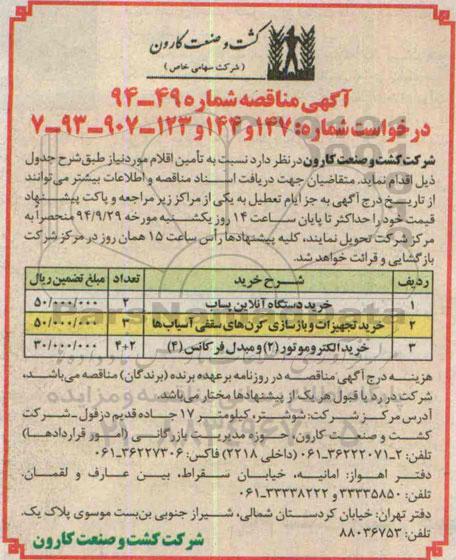 کشت و صنعت کارون
(شرکت سهامی خاص)
آگهی مناقصه شماره ۴۹-۹۴
درخواست شماره: ۱۴۷ و ۱۴۴ و ۱۲۳-۹۰۷-۹۳-۷
شرکت کشت و صنعت کارون در نظر دارد نسبت به تأمین اقلام موردنیاز طبق شرح جدول
ذیل اقدام نماید. متقاضیان جهت دریافت اسناد مناقصه و اطلاعات بیشتر می‌توانند
از تاریخ درج آگهی به جز ایام تعطیل به یکی از مراکز زیر مراجعه و پاکت پیشنهاد
قیمت خود را حداکثر تا پایان ساعت ۱۴ روز یکشنبه مورخه ۹۴/۹/۲۹ منحصراً به
مرکز شرکت تحویل نمایند، کلیه پیشنهادها رأس ساعت ۱۵ همان روز در مرکز شرکت
بازگشایی و قرائت خواهد شد.
ردیف شرح خرید تعداد مبلغ تضمین ریال
۱ خرید دستگاه آنلاین پساب ۲ ۵۰/۰۰۰/۰۰۰
۲ خرید تجهیزات و بازسازی کرن‌های سقفی آسیاب‌ها ۳ ۵۰/۰۰۰/۰۰۰
۳ خرید الکتروموتور (۲) و مبدل فرکانس (۴) ۴+۲ ۳۰/۰۰۰/۰۰۰
هزینه درج آگهی مناقصه در روزنامه برعهده برنده (برندگان) مناقصه می‌باشد،
شرکت در رد یا قبول هر یک از پیشنهادها مختار می‌باشد.
آدرس مرکز شرکت: شوشتر، کیلومتر ۱۷ جاده قدیم دزفول-شرکت
کشت و صنعت کارون، حوزه مدیریت بازرگانی (امور قراردادها)
تلفن: ۲-۳۶۲۲۲۰۷۱-۰۶۱ (داخلی ۲۲۱۸) فاکس: ۳۶۲۲۷۳۰۶-۰۶۱
دفتر اهواز: امانیه، خیابان سقراط، بین عارف و لقمان.
تلفن: ۳۳۳۳۵۸۵۰ و ۳۳۳۳۸۲۲۲-۰۶۱
دفتر تهران: خیابان کردستان شمالی، شیراز جنوبی بن‌بست موسوی پلاک یک.
تلفن: ۸۸۰۳۶۷۵۳
شرکت کشت و صنعت کارون